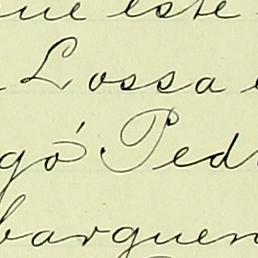 ue este
Lossa
gó Ped
barquen